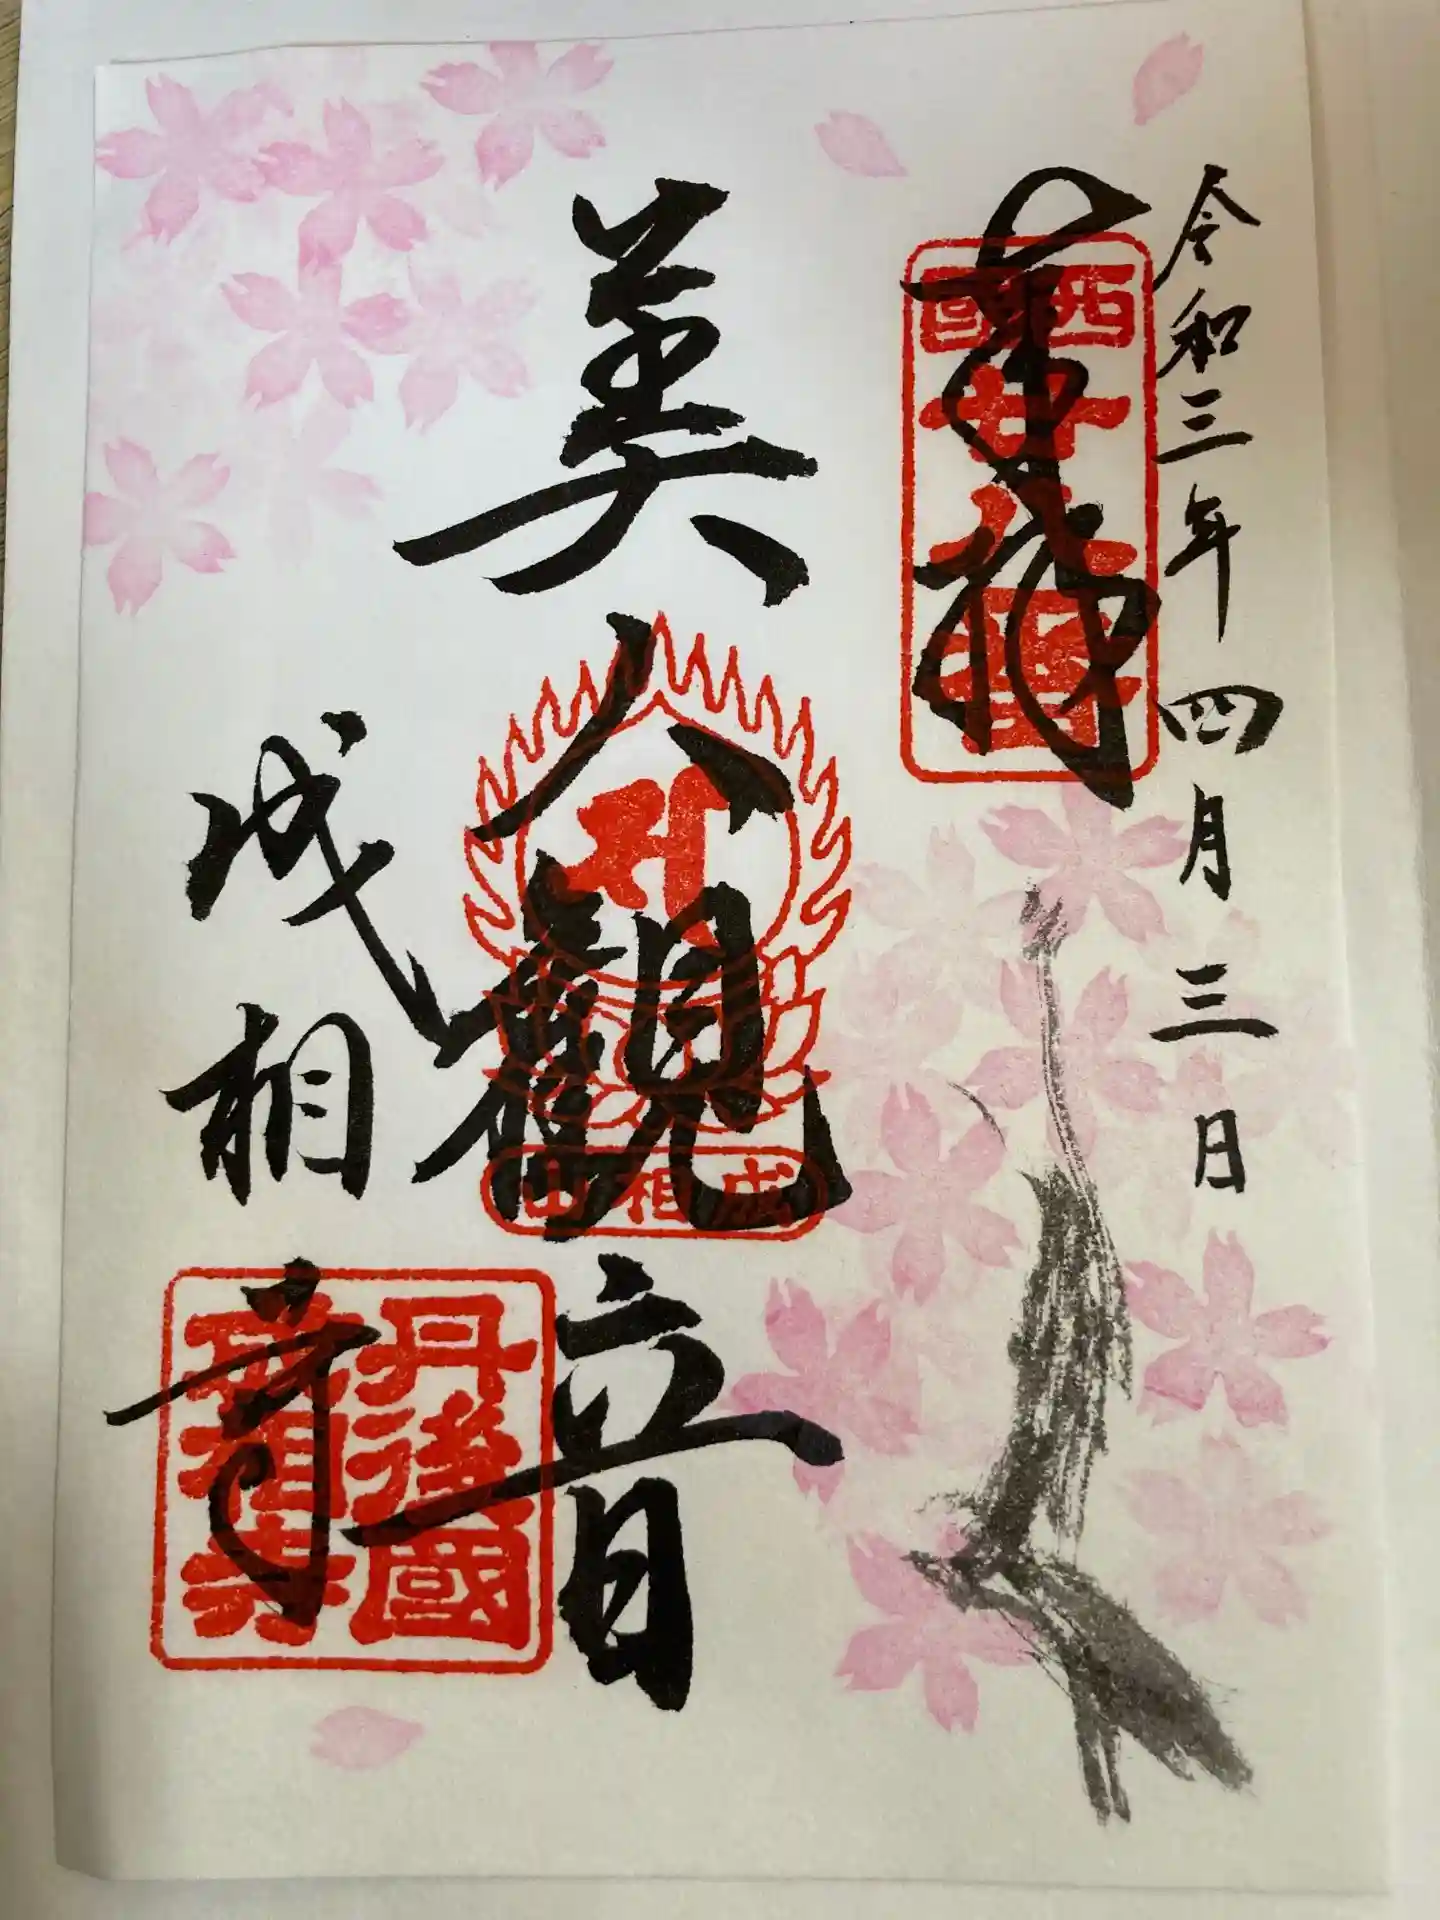 令和三年四月三日
奉拝
西国
廿八番
美人観音
成相山
成相寺
丹後國
成相寺